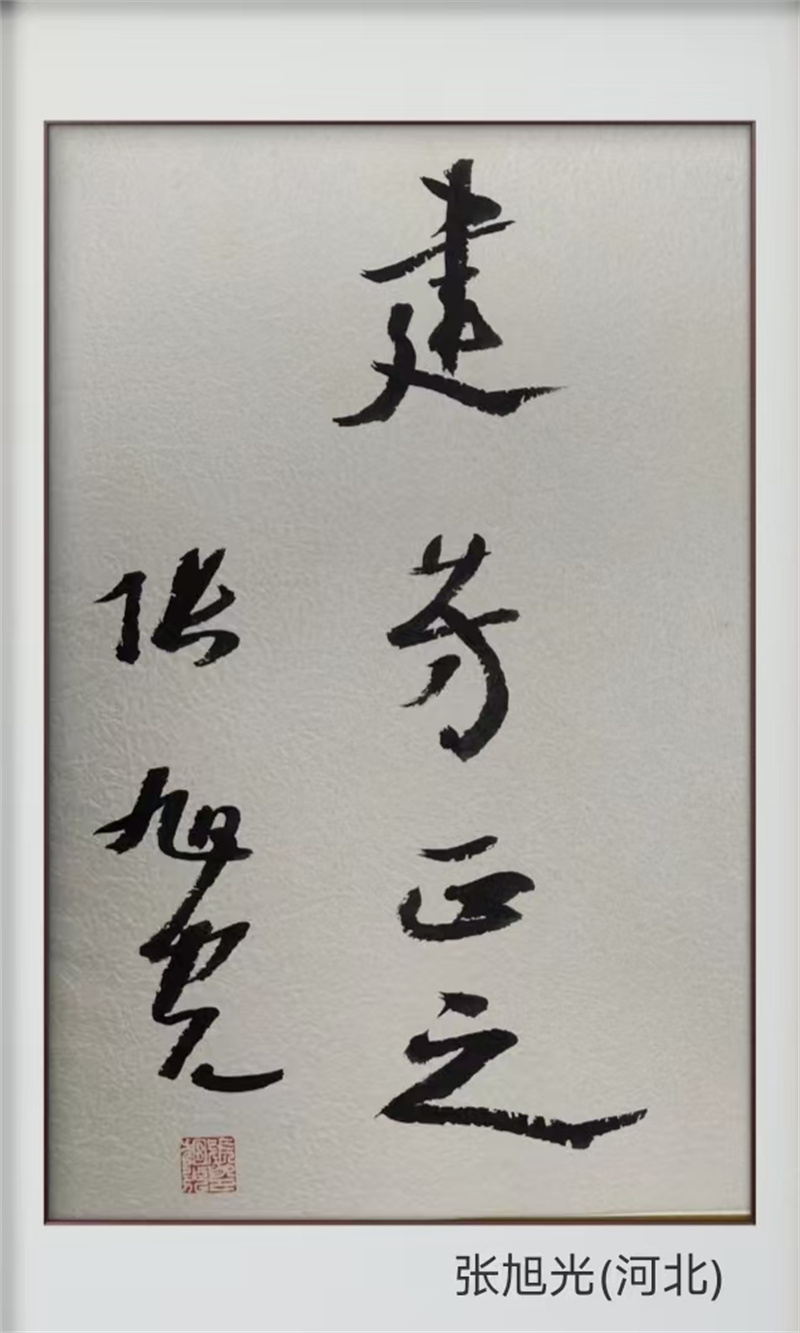 建芳正之
张旭光
张旭光(河北)